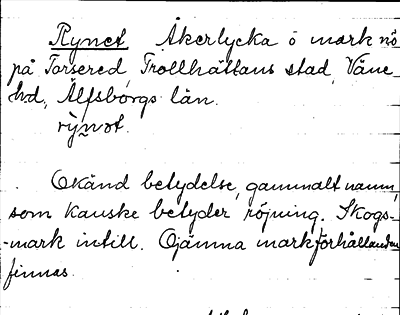 Rynet Åkerlycka o mark nö
på Torsered, Trollhättans stad, Väne
hd, Älfsborgs län.
rỳnət.
Okänd betydelse, gammalt namn,
som kanske betyder röjning. Skogs-
-mark intill. Ojämna markförhållanden
finnas.